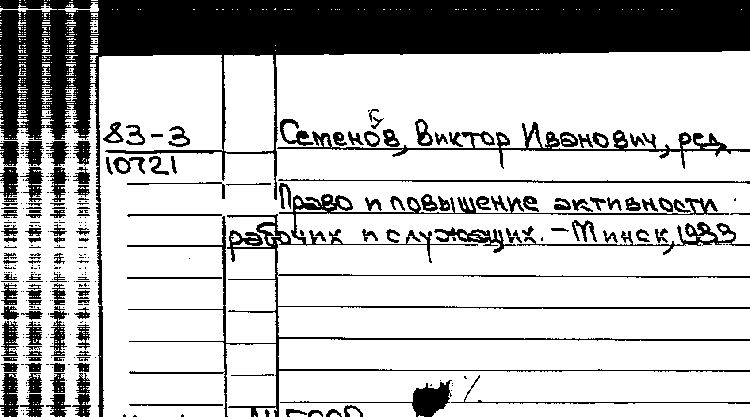 83-3
10721
Семенов, Виктор Иванович, ред.
Право и повышение активности
рабочих и служащих. - Минск, 1983